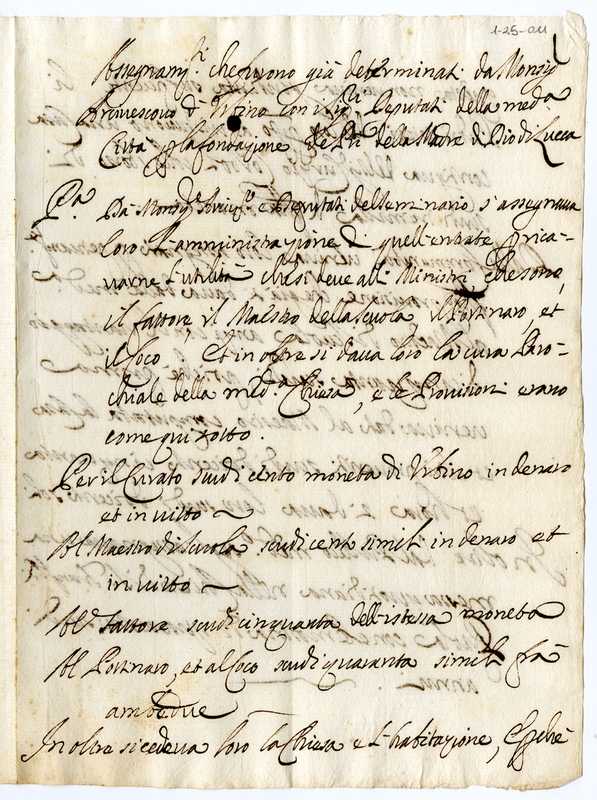 1-25-011
Assegnam.ti che furono già determinati da Monsig.r
Arcivescovo d'Urbino con i Sig.ri Deputati della med.a
Città p la fondazione de PP. della Madre di Dio di Lucca
P.a Da Mons.r Arciv.o e Deputati del Seminario s'assegnava
loro l'amministrazione di quell'entrate p rica-
varne l'utilità che si deve alli Ministri che sono,
il fattore, il Maestro della scuola, il Portinaro, et
il Coco. Et in oltre si dava loro la cura Paro-
chiale della med.a Chiesa, e le Provisioni erano
come qui sotto.
Per il Curato scudi cento moneta di Urbino in denaro
et in vitto
Al Maestro di Scuola scudi cento simili in denaro et
in vitto
Al Fattore scudi cinquanta dell'istessa moneta
Al Portinaro, et al Coco scudi quaranta simili frà
ambedue
In oltre si cedeva loro la Chiesa e l'habitazione, e perche